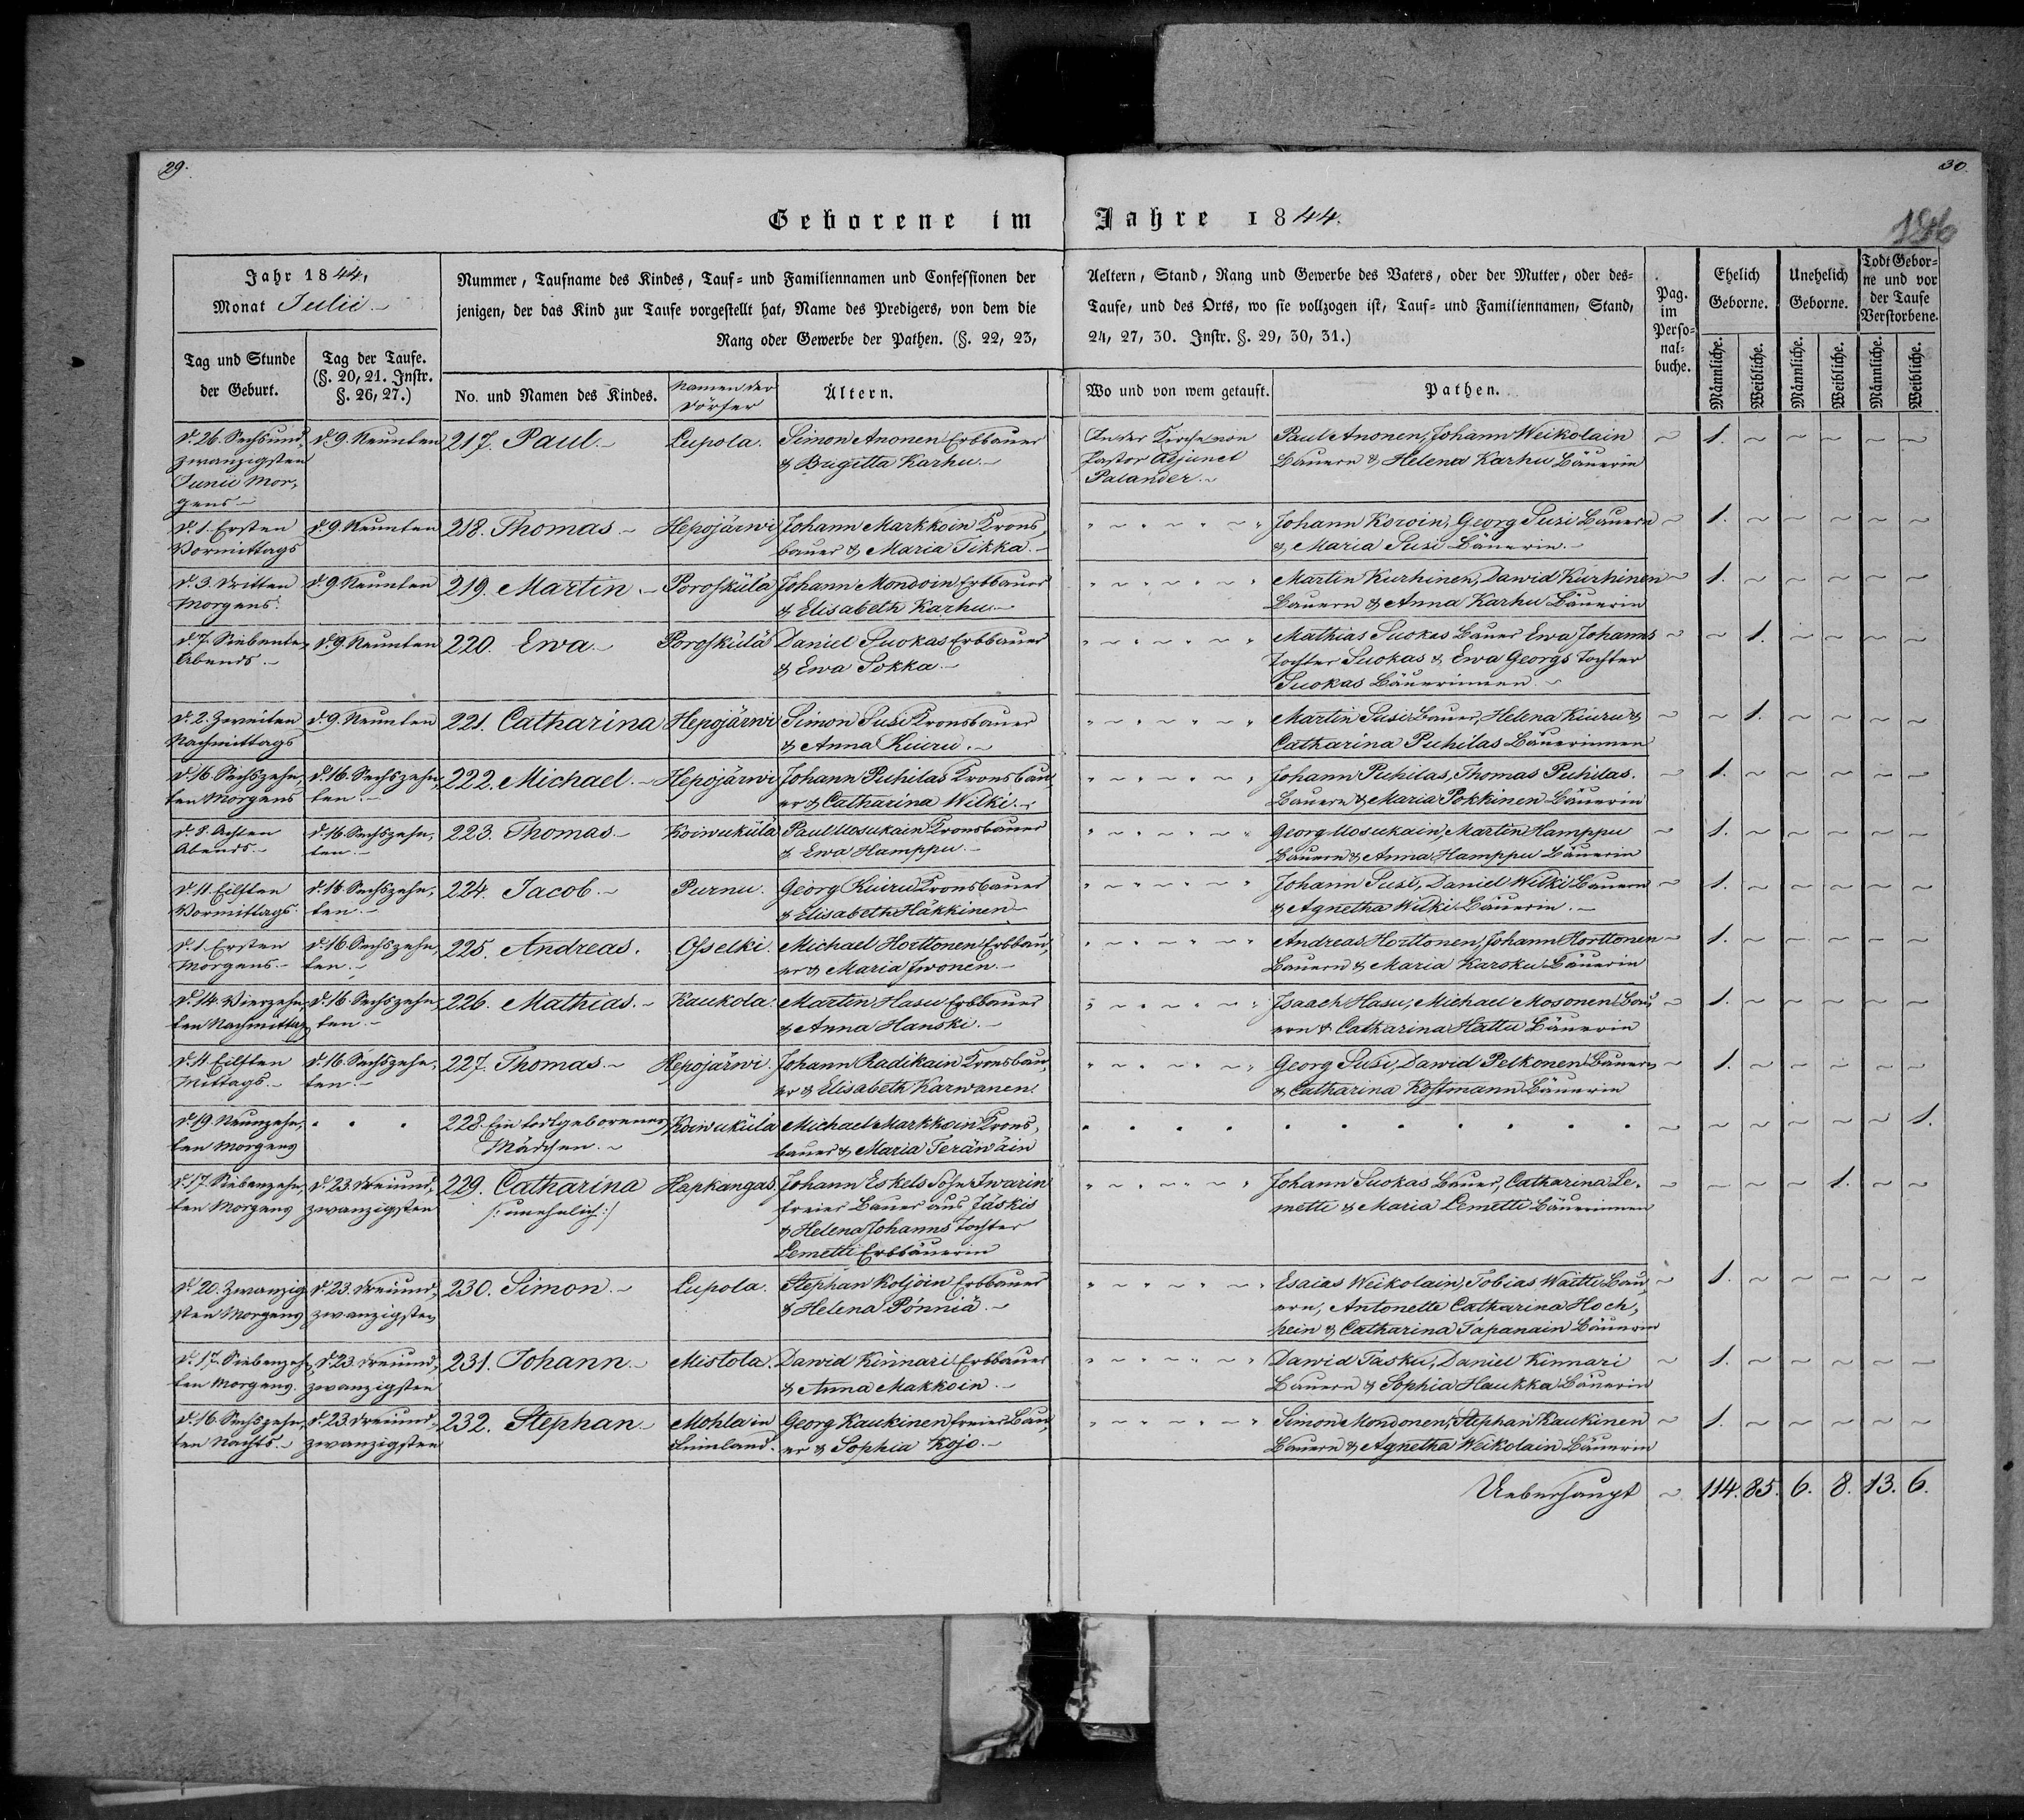 29.
30.
Geborene im Jahre 1844.
Jahr 1844,
Monat Julii
Nummer, Taufname des Kindes, Tauf- und Familiennamen und Confessionen der Aeltern, Stand, Rang und Gewerbe des Vaters, oder der Mutter, oder des-
jenigen, der das Kind zur Taufe vorgestellt hat, Name des Predigers, von dem die Taufe, und des Orts, wo sie vollzogen ist, Tauf- und Familiennamen, Stand,
Rang oder Gewerbe der Pathen. (§. 22, 23, 24, 27, 30. Instr. §. 29, 30, 31.)
Pag. im Perso- nal- buche.
Ehelich Geborne.
Unehelich Geborne.
Todt Gebor- ne und vor der Taufe Verstorbene.
Tag und Stunde der Geburt.
Tag der Taufe. (§. 20, 21. Instr. §. 26, 27.)
No. und Namen des Kindes.
Namen der Dörfer
Ältern.
Wo und von wem getauft.
Pathen.
Männliche. Weibliche. Männliche. Weibliche. Männliche. Weibliche.
d. 26. Sechsund- d. 9. Neunten 217. Paul. Lupola. Simon Anonen Erbbauer In der Kirche von Paul Anonen, Johann Weikolain 1.
zwanzigsten & Brigitta Karhu. Pastor Adjunct Bauern & Helena Karhu Bäuerin
Junii Mor- Palander.
gens
d. 1. Ersten d. 9. Neunten 218. Thomas Hepojärwi Johann Markkoin Krons- Johann Korvin, Georg Susi Bauern 1.
Vormittags bauer & Maria Tikka. & Maria Susi Bäuerin.
d. 3. Dritten d. 9. Neunten 219. Martin. Porosküla Johann Mondoin Erbbauer Martin Kurhinen, Dawid Kurhinen 1.
Morgens. & Elisabeth Karhu. Bauern & Anna Karhu Bäuerin
d. 7. Siebenten d. 9. Neunten 220. Ewa. Porosküla Daniel Suokas Erbbauer Mathias Suokas Bauer Ewa Johanns 1.
Abends. & Ewa Sokka. Tochter Suokas & Ewa Georgs Tochter
Suokas Bäuerinnen.
d. 2. Zweiten d. 9. Neunten 221. Catharina Hepojärwi Simon Susi Kronsbauer Martin Susi Bauer, Helena Kiuru & 1.
Nachmittags & Anna Kiuru. Catharina Puhilas Bäuerinnen
d. 16. Sechszehn- d. 16. Sechszehn- 222. Michael. Hepojärwi Johann Puhilas Kronsbau- Johann Puhilas, Thomas Puhilas. 1.
ten Morgens ten. er & Catharina Wilki. Bauern & Maria Pokkinen Bäuerin
d. 8. Achten d. 16. Sechszehn- 223. Thomas Koiwuküla Paul Uosukain Kronsbauer Georg Uosukain, Martin Hamppu 1.
Abends. ten. & Ewa Hamppu. Bauern & Anna Hamppu Bäuerin
d. 11. Eilften d. 16. Sechszehn- 224. Jacob. Purnu. Georg Kiuru Kronsbauer Johann Susi, Daniel Wilki Bauern 1.
Vormittags. ten. & Elisabeth Häkkinen & Agnetha Wilki Bäuerin.
d. 1. Ersten d. 16. Sechszehn- 225. Andreas. Osselki. Michael Horttonen Erbbau- Andreas Horttonen, Johann Horttonen 1.
Morgens. ten. er & Maria Iwonen. Bauern & Maria Karoku Bäuerin
d. 14. Vierzehn- d. 16. Sechszehn- 226. Mathias. Kaukola. Martin Hasu Erbbauer Isaach Hasu, Michael Mosonen Bau- 1.
ten Nachmittag ten. & Anna Hanski. ern & Catharina Hattu Bäuerin
d. 11. Eilften d. 16. Sechszehn- 227. Thomas. Hepojärwi. Johann Radikain Kronsbau- Georg Susi, Dawid Pelkonen Bauern 1.
Mittags. ten. er & Elisabeth Karwanen. & Catharina Kostmann Bäuerin
d. 19. Neunzehn- 228. Ein todtgeborenes Koiwuküla Michael Markkoin Krons- 1.
ten Morgens Mädchen. bauer & Maria Teräwäin
d. 17. Siebenzehn- d. 23. Dreiund- 229. Catharina Hapkangas Johann Eskels Sohn Iwarin Johann Suokas Bauer, Catharina Le- 1.
ten Morgens zwanzigsten /: unehelich :/ freier Bauer aus Jäskis metti & Maria Lemetti Bäuerinnen
& Helena Johanns Tochter
Lemetti Erbbäuerin
d. 20. Zwanzig- d. 23. Dreiund- 230. Simon. Lupola. Stephan Koljoin Erbbauer Esaias Weikolain, Tobias Waitti Bau- 1.
sten Morgens zwanzigsten & Helena Pönniä. ern, Antonette Catharina Hoch-
hein & Catharina Tapanain Bäuerin
d. 17. Siebenzehn- d. 23. Dreiund- 231. Johann. Mistola. Dawid Kinnari Erbbauer Dawid Tasku, Daniel Kinnari 1.
ten Morgens. zwanzigsten & Anna Makkoin. Bauern & Sophia Haukka Bäuerin
d. 16. Sechszehn- d. 23. Dreiund- 232. Stephan. Mohla in Georg Kaukinen freier Bau- Simon Mondonen, Stephan Kaukinen 1.
ten Nachts. zwanzigsten Finnland. er & Sophia Kojo. Bauern & Agnetha Weikolain Bäuerin
Ueberhaupt 114. 85. 6. 8. 13. 6.